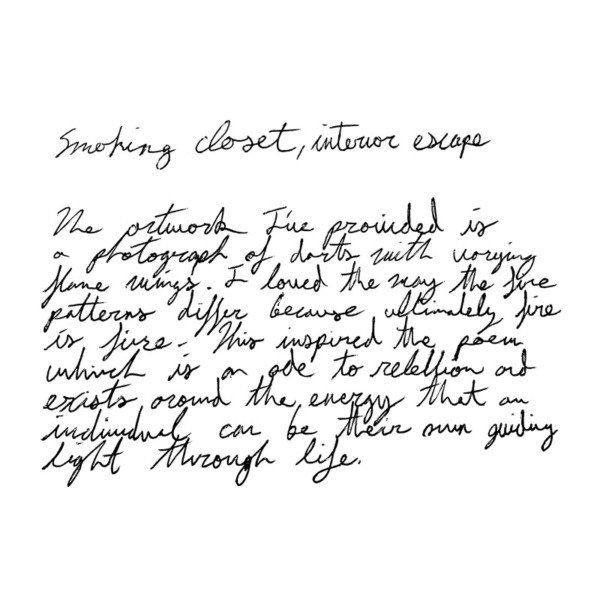 Smoking closet, interior escape
The artwork I've provided is
a photograph of darts with varying
flame wings. I loved the way the fire
patterns differ because ultimately fire
is fire. This inspired the poem
which is an ode to rebellion and
exists around the energy that an
individual can be their own guiding
light through life.